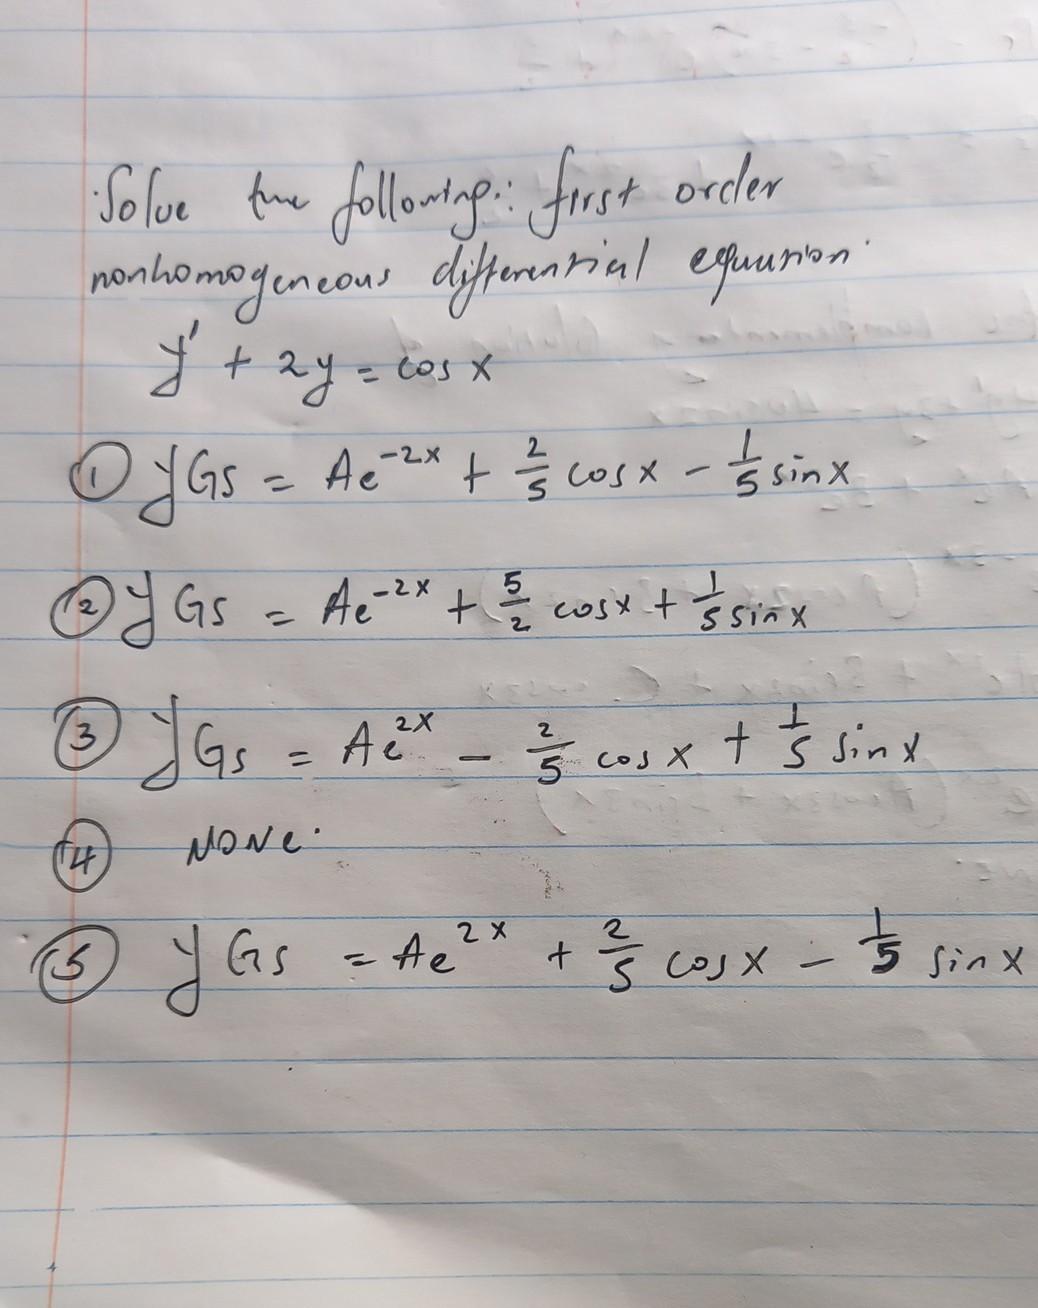 Solve the following: first order
nonhomogeneous differential equation
y' + 2y = cos x
① yGS = Ae^{-2x} + 2/5 cos x - 1/5 sin x
② yGS = Ae^{-2x} + 5/2 cos x + 1/5 sin x
③ yGS = Ae^{2x} - 2/5 cos x + 1/5 sin x
④ NONE.
⑤ yGS = Ae^{2x} + 2/5 cos x - 1/5 sin x